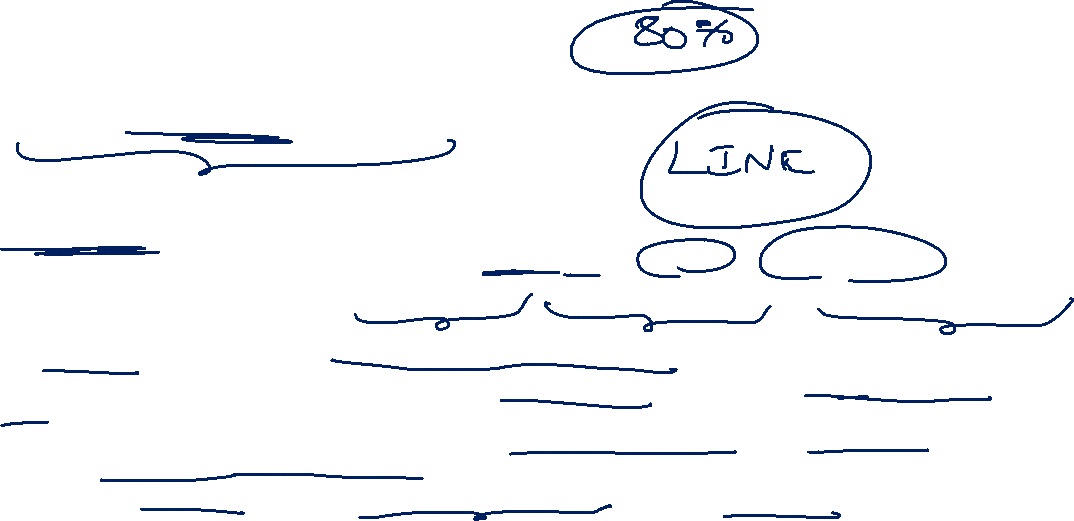 80%
LINE